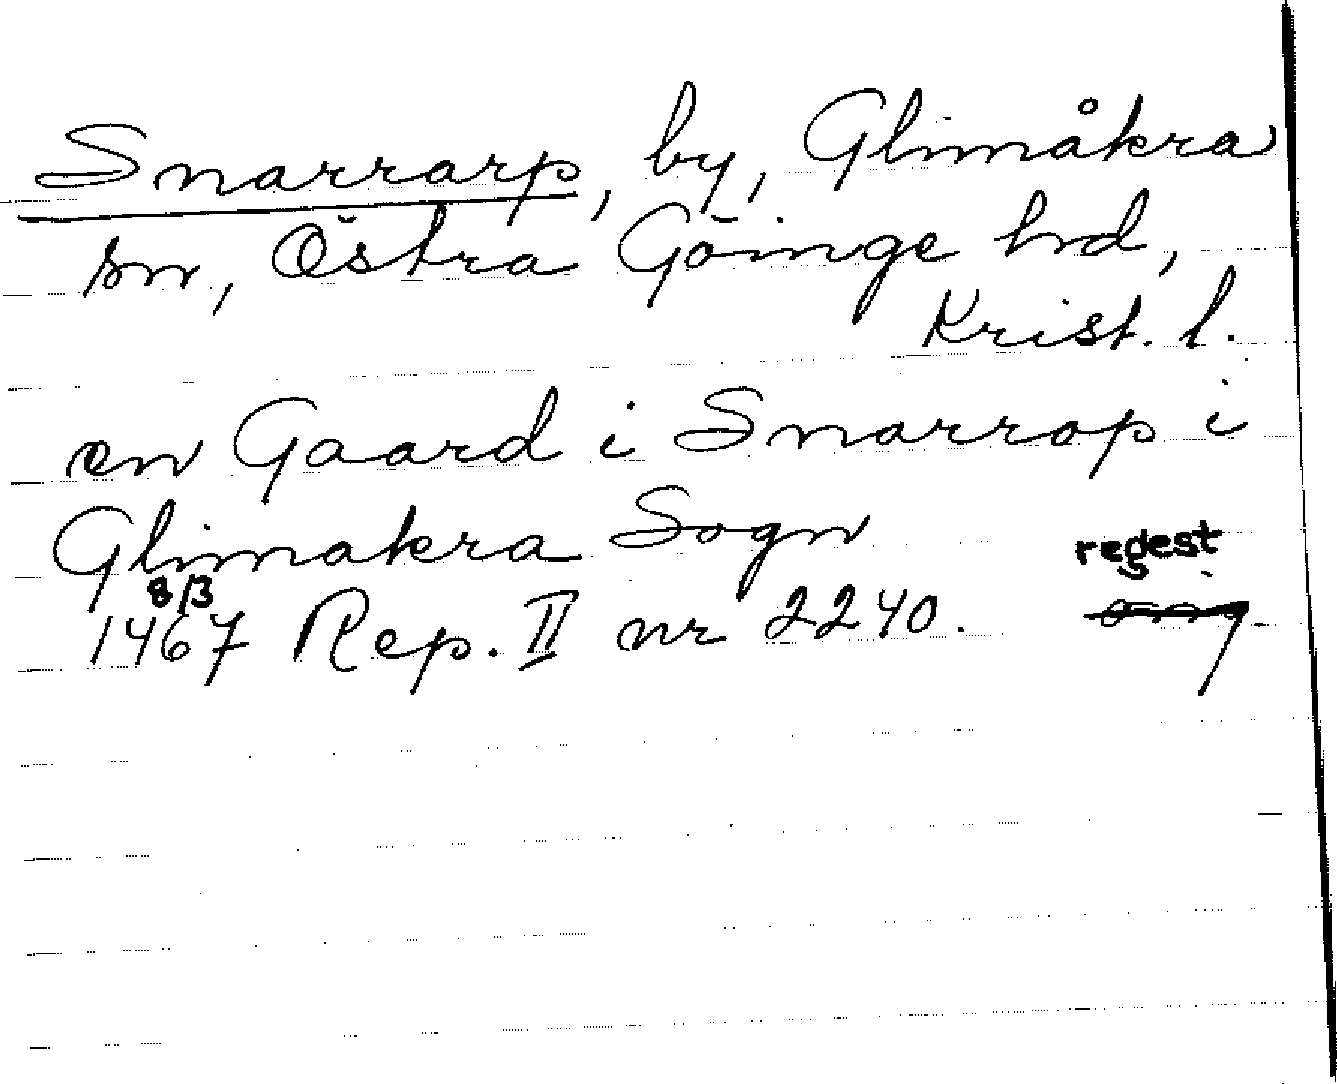 Snarrarp, by, Glimåkra
sn, Östra Göinge hrd,
Krist. l.
en Gaard i Snarrop i
Glimakra Sogn
regest
8/3
1467 Rep. II nr 2240.